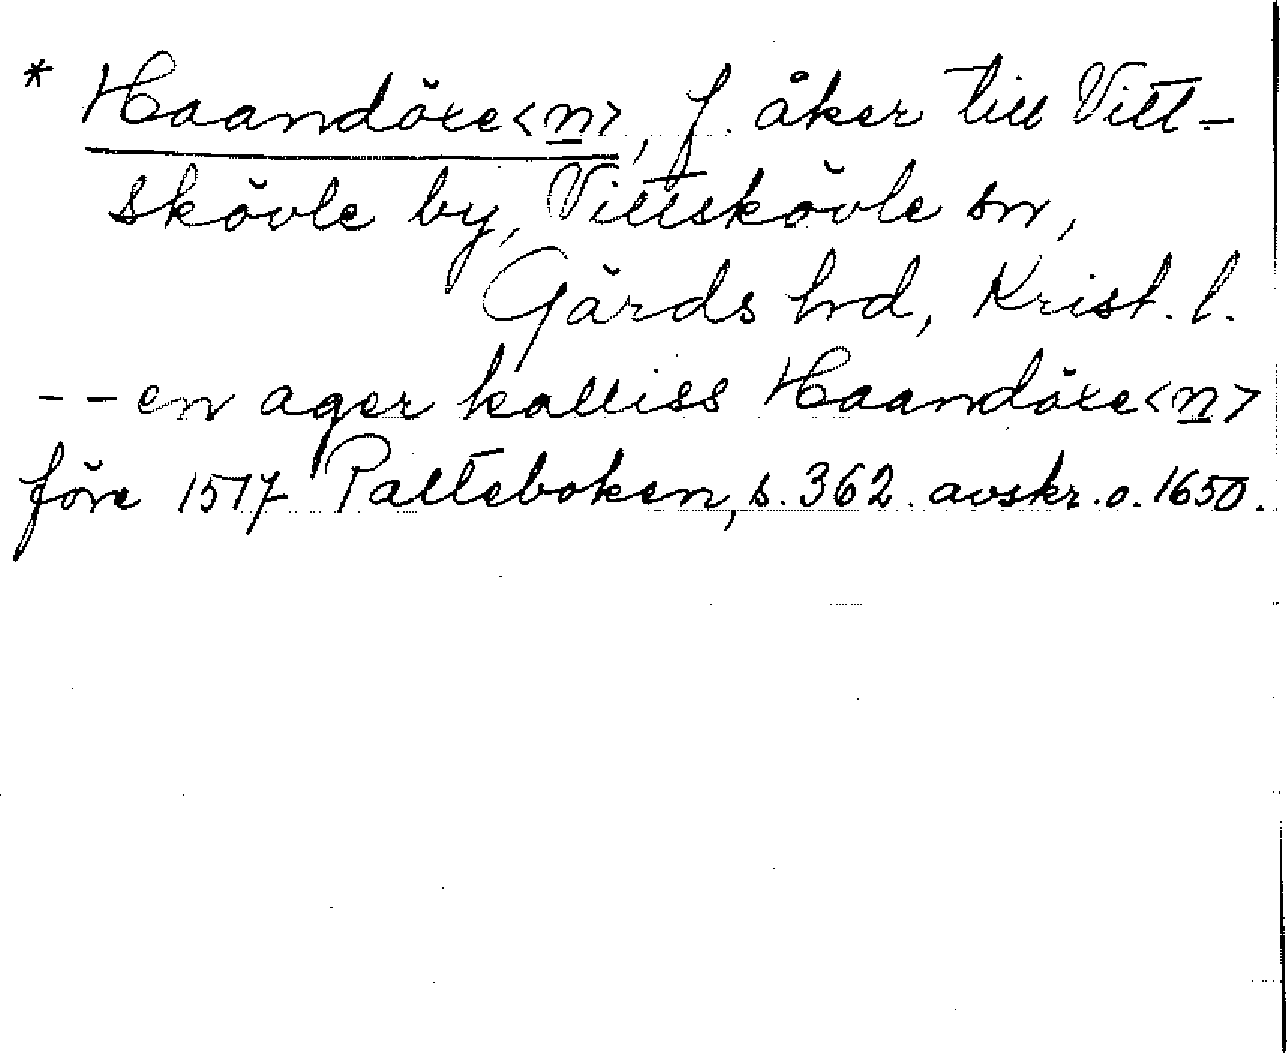 * Haandöxe<n>, f. åker till Vitt-
skövle by, Vittskövle sn,
Gärds hd, Krist. l.
-- en ager kalliss Haandöxe<n>
före 1517 Palteboken, s. 362. avskr. o. 1650.